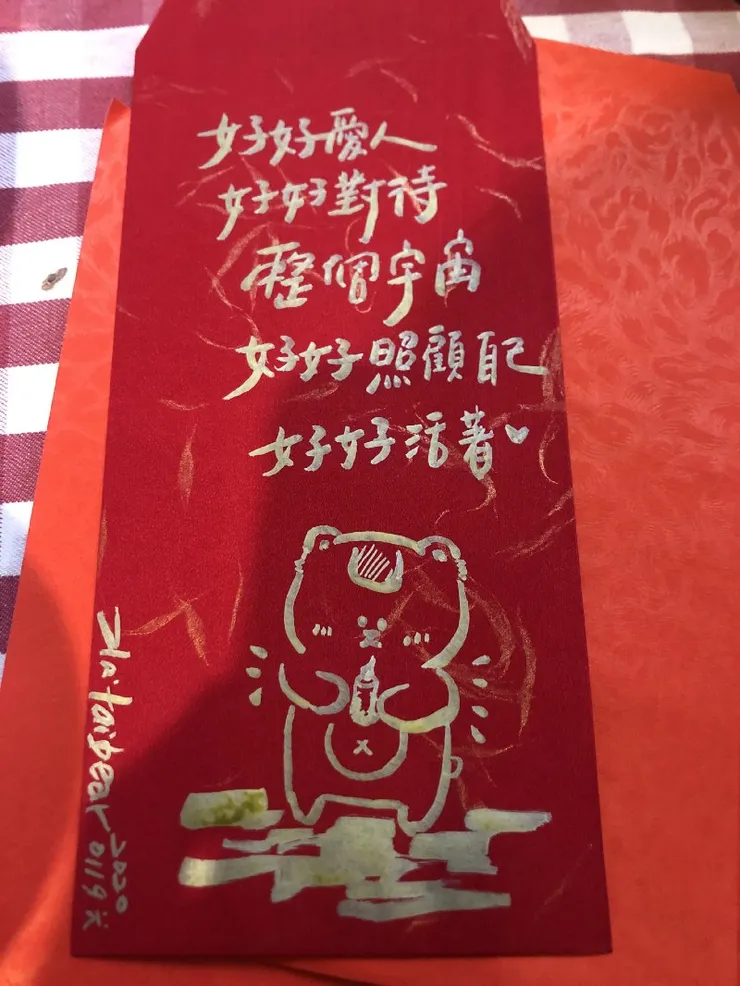 好好愛人
好好對待
整個宇宙
好好照顧自己
好好活著
Haitaibear 2020
0119